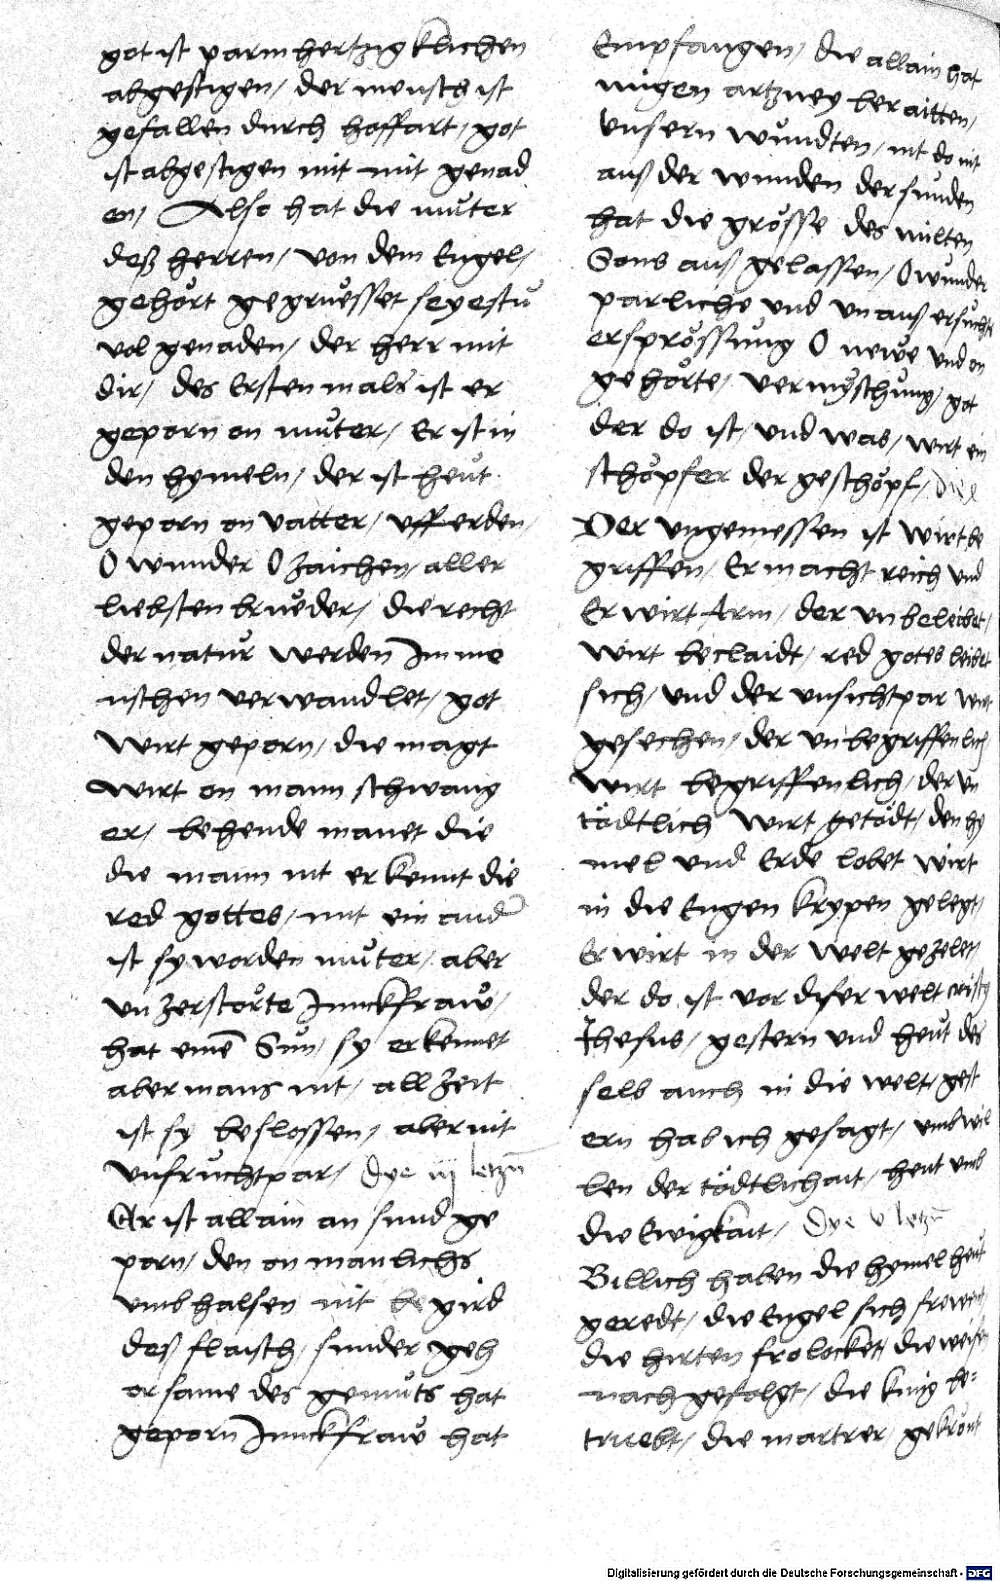 got ist parmhertzigklichen
abgestigen / der mensch ist
gefallen durch hoffart / got
ist abgestigen mit mit genad
en / Also hat die můter
deß herren / von dem Engel /
gehört gegrüesset seyestu
vol genaden / der herr mit
dir / des Ersten mals ist er
geporn on můter / Er ist in
den hymeln / der ist heut
geporn on vatter / vff erden /
O wunder O zaichen / aller
liebsten brüeder / die recht
der natur werden Im me
nschen verwandlet / got
wirt geporn / die magt
wirt on mann schwang
er / behende manet die
die mann nit erkennt die
red gottes / mit ein ander
ist sy worden můter / aber
vnzerstörte Junckfraw /
hat einē Sun / sy erkennet
aber mans nit / allzeit
ist sy beslossen / aber nit
vnfruchtpar / Dye iij letzn̄
Er ist allain an sund ge
porn / den on manlichs
vmbhalsen nit begird
deß flaisch / sunder geh
orsame des gemuts hat
geporn Junckfraw hat
Empfangen / die allain hat
mügen artzney beraitten /
vnsern wundten / nit do mit
auß der wunden der sunden
hat die grösse des milten
Sons auß gelassen / O wunder
parliche vnd vnauß ersuchte
ersprössung O newe vnd on
gehörte / vermyschung / got
der do ist / vnd was / wirt ein
schöpfer der geschöpf /
Der vngemessen ist wirt be
griffen / Er macht reich vnd
Er wirt Arm / der vnbeleibet /
wirt beclaidt / red gotes leibet
sich / vnd der vnsichtpar wirt
gesechen / der vnbegriffenlich
wirt begriffenlich / der vn
tödtlich wirt getödt / den hy
mel vnd Erde lobet wirt
in die Engen krypen gelegt /
Er wirt in der welt gezelet /
der do ist vor diser welt cristo
Jhesus / gestern vnd heut der
selb auch in die welt / gest
ern hab ich gesagt / vmb wil
len der tödtlichait / heut vmb
die Ewigkait / Dye v letzn̄
Billich haben die hymel heut
geredt / die Engel sich frewent /
die hirten frolocket / die weisen
nachgefolgt / die king be=
truebt / die martrer gekrönt